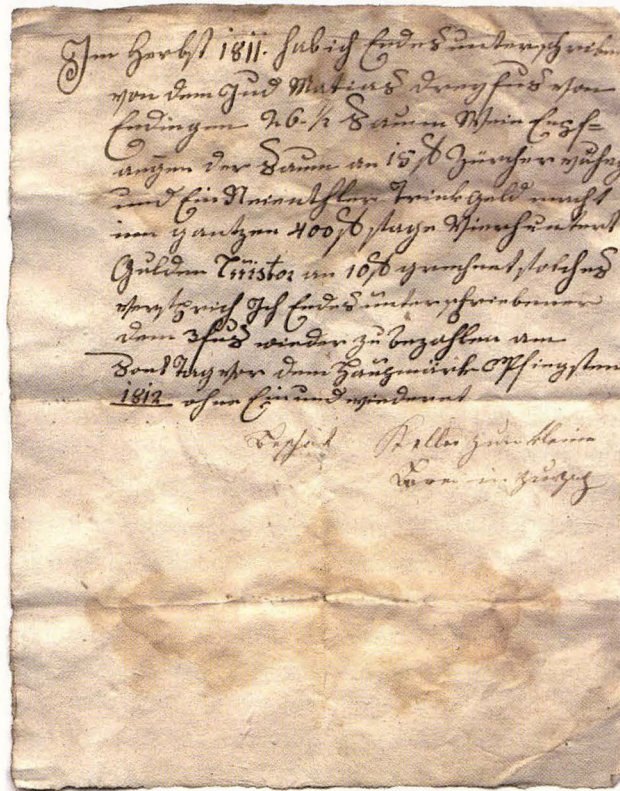 Im Herbst 1811. hab ich Endes unterschriben
von dem Jud Matias Dreyfus von
Endingen 26 1/2 Saum Wein Empf=
angen der Saum an 15 fl Zürcher
und Ein Trinkgeld macht
im gantzen 400 fl sage Vierhuntert
Gulden an 10 fl grechnet solches
versprich Ich Endes unterschriebener
dem wieder zu bezahlen am
Sontag vor dem Pfingsten
1812 ohne Ein und wiederret
Keller zum kleine
in